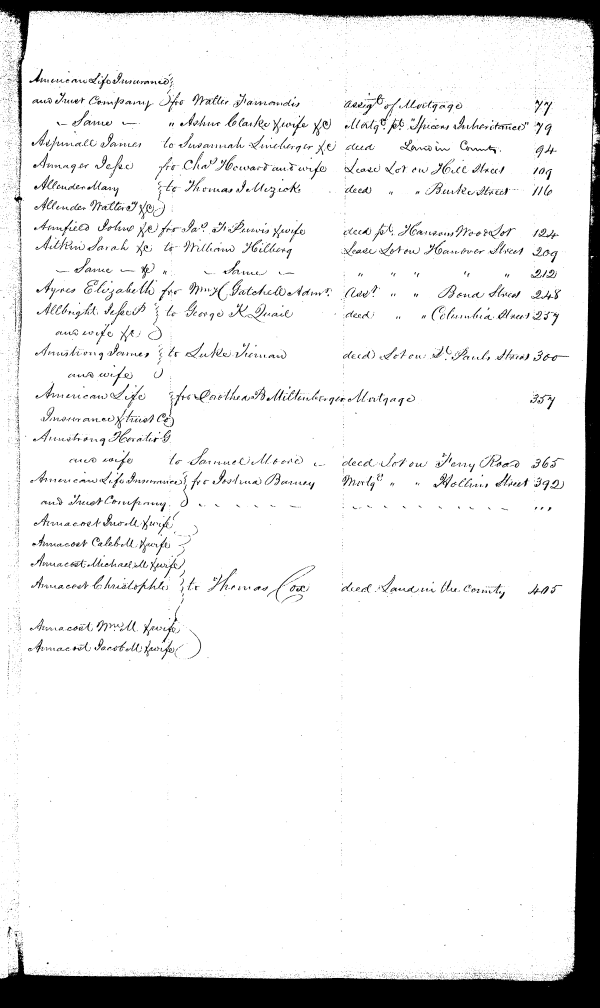 American Life Insurance
and Trust Company } fro Walter Farnandis assigt of Mortgage 77
— Same — " Ashur Clarke & wife &c Mortge pt "Spicers Inheritance" 79
Aspinall James to Susannah Lineberger &c deed Land in County 94
Annager Jesse fro Chas Howard and wife Lease Lot on Hill Street 109
Allender Mary } to Thomas J Mezick deed " " Burke Street 116
Allender Walter T &c
Armfield John &c fro Jas. F Purvis & wife deed pt. Hansons Wood Lot 124
Aitkin Sarah &c to William Hilberg Lease Lot on Hanover Street 209
— Same — &c " — Same — " " " " " 212
Ayres Elizabeth fro Wm H Gatchell Admr. Ass.t " " Bond Street 248
Allbright Jesse P } to George K Quail deed " " Columbia Street 257
and wife &c
Armstrong James } to Luke Tiernan deed Lot on St. Pauls Street 300
and wife
American Life } fro Dorothea B Miltenberger Mortgage 357
Insurance & trust Co
Armstrong Horatio G
and wife to Samuel Moore — deed Lot on Ferry Road 365
American Life Insurance } fro Joshua Barney Mortge " " Hollins Street 392
and Trust Company
Armacost M & wife
Armacost Caleb M & wife
Armacost Michael M & wife
Armacost Christopher } to Thomas Cox deed Land in the County 405
Armacost Wm M & wife
Armacost Jacob M & wife